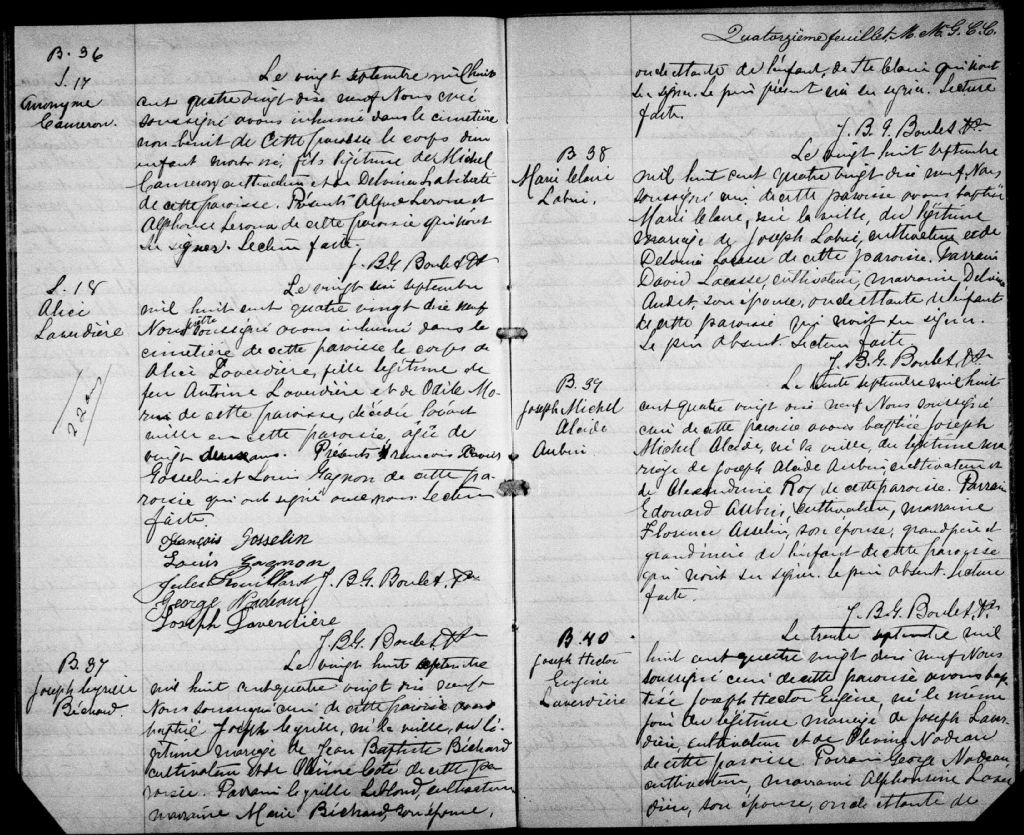 B. 36
S. 17
Anonyme
Cameron.
Le vingt septembre mil huit
cent quatre vingt dix neuf Nous curé
soussigné avons inhumé dans le cimetière
non bénit de cette paroisse le corps d'un
enfant mort né, fils légitime de Michel
Cameron cultivateur et de Delvina Laliberté
de cette paroisse. Présents Alfred Leroux et
Alphonse Leroux de cette paroisse qui n'ont
su signer. Lecture faite.
J. B. G. Boulet, Ptre
S. 18
Alice
Laverdière
Le vingt six septembre
mil huit cent quatre vingt dix neuf
Nous ptre soussigné avons inhumé dans le
cimetière de cette paroisse le corps de
Alice Laverdière, fille légitime de
feu Antoine Laverdière et de Odile Mo-
rin de cette paroisse, décédée l'avant
veille en cette paroisse, âgée de
vingt deux ans. Présents François Xavier
Gosselin et Louis Gagnon de cette pa-
roisse qui ont signé avec nous. Lecture
faite.
22 ans
François Gosselin
Louis Gagnon
Jules Rouillard J. B. G. Boulet, Ptre
George Nadeau
Joseph Laverdière
J. B. G. Boulet, Ptre
B. 37
Joseph Cyrille
Béchard.
Le vingt huit septembre
mil huit cent quatre vingt dix neuf
Nous soussigné curé de cette paroisse avons
baptisé Joseph Cyrille, né la veille, du lé-
gitime mariage de Jean Baptiste Béchard
cultivateur et de Côté de cette pa-
roisse. Parrain Cyrille Leblond, cultivateur
marraine Marie Béchard, son épouse,
Quatorzième feuillet. M. N. G. C. C.
oncle et tante de l'enfant, de Ste Claire qui n'ont
su signer. Le père présent n'a su signer. Lecture
faite.
J. B. G. Boulet, Ptre
B. 38
Marie Claire
Labrie.
Le vingt huit septembre
mil huit cent quatre vingt dix neuf, Nous
soussigné curé de cette paroisse avons baptisé
Marie Claire, née la veille, du légitime
mariage de Joseph Labrie, cultivateur et de
Delvina Lacasse de cette paroisse. Parrain
David Lacasse, cultivateur, marraine Delvina
Audet, son épouse, oncle et tante de l'enfant
de cette paroisse qui n'ont su signer.
Le père absent. Lecture faite.
J. B. G. Boulet, Ptre
B. 39
Joseph Michel
Alcide
Aubin
Le trente septembre mil huit
cent quatre vingt dix neuf Nous soussigné
curé de cette paroisse avons baptisé Joseph
Michel Alcide, né la veille, du légitime ma-
riage de Joseph Alcide Aubin, cultivateur et
de Alexandrine Roy de cette paroisse. Parrain
Edouard Aubin, cultivateur, marraine
Florence Asselin, son épouse, grand père et
grand'mère de l'enfant de cette paroisse
qui n'ont su signer. Le père absent. Lecture
faite
J. B. G. Boulet, Ptre
B. 40
Joseph Hector
Eugène
Laverdière
Le trente septembre mil
huit cent quatre vingt dix neuf Nous
soussigné curé de cette paroisse avons bap-
tisé Joseph Hector Eugène, né le même
jour du légitime mariage de Joseph Laver-
dière, cultivateur et de Olevine Nadeau
de cette paroisse. Parrain George Nadeau,
cultivateur, marraine Alphonsine Laver-
dière, son épouse, oncle et tante de